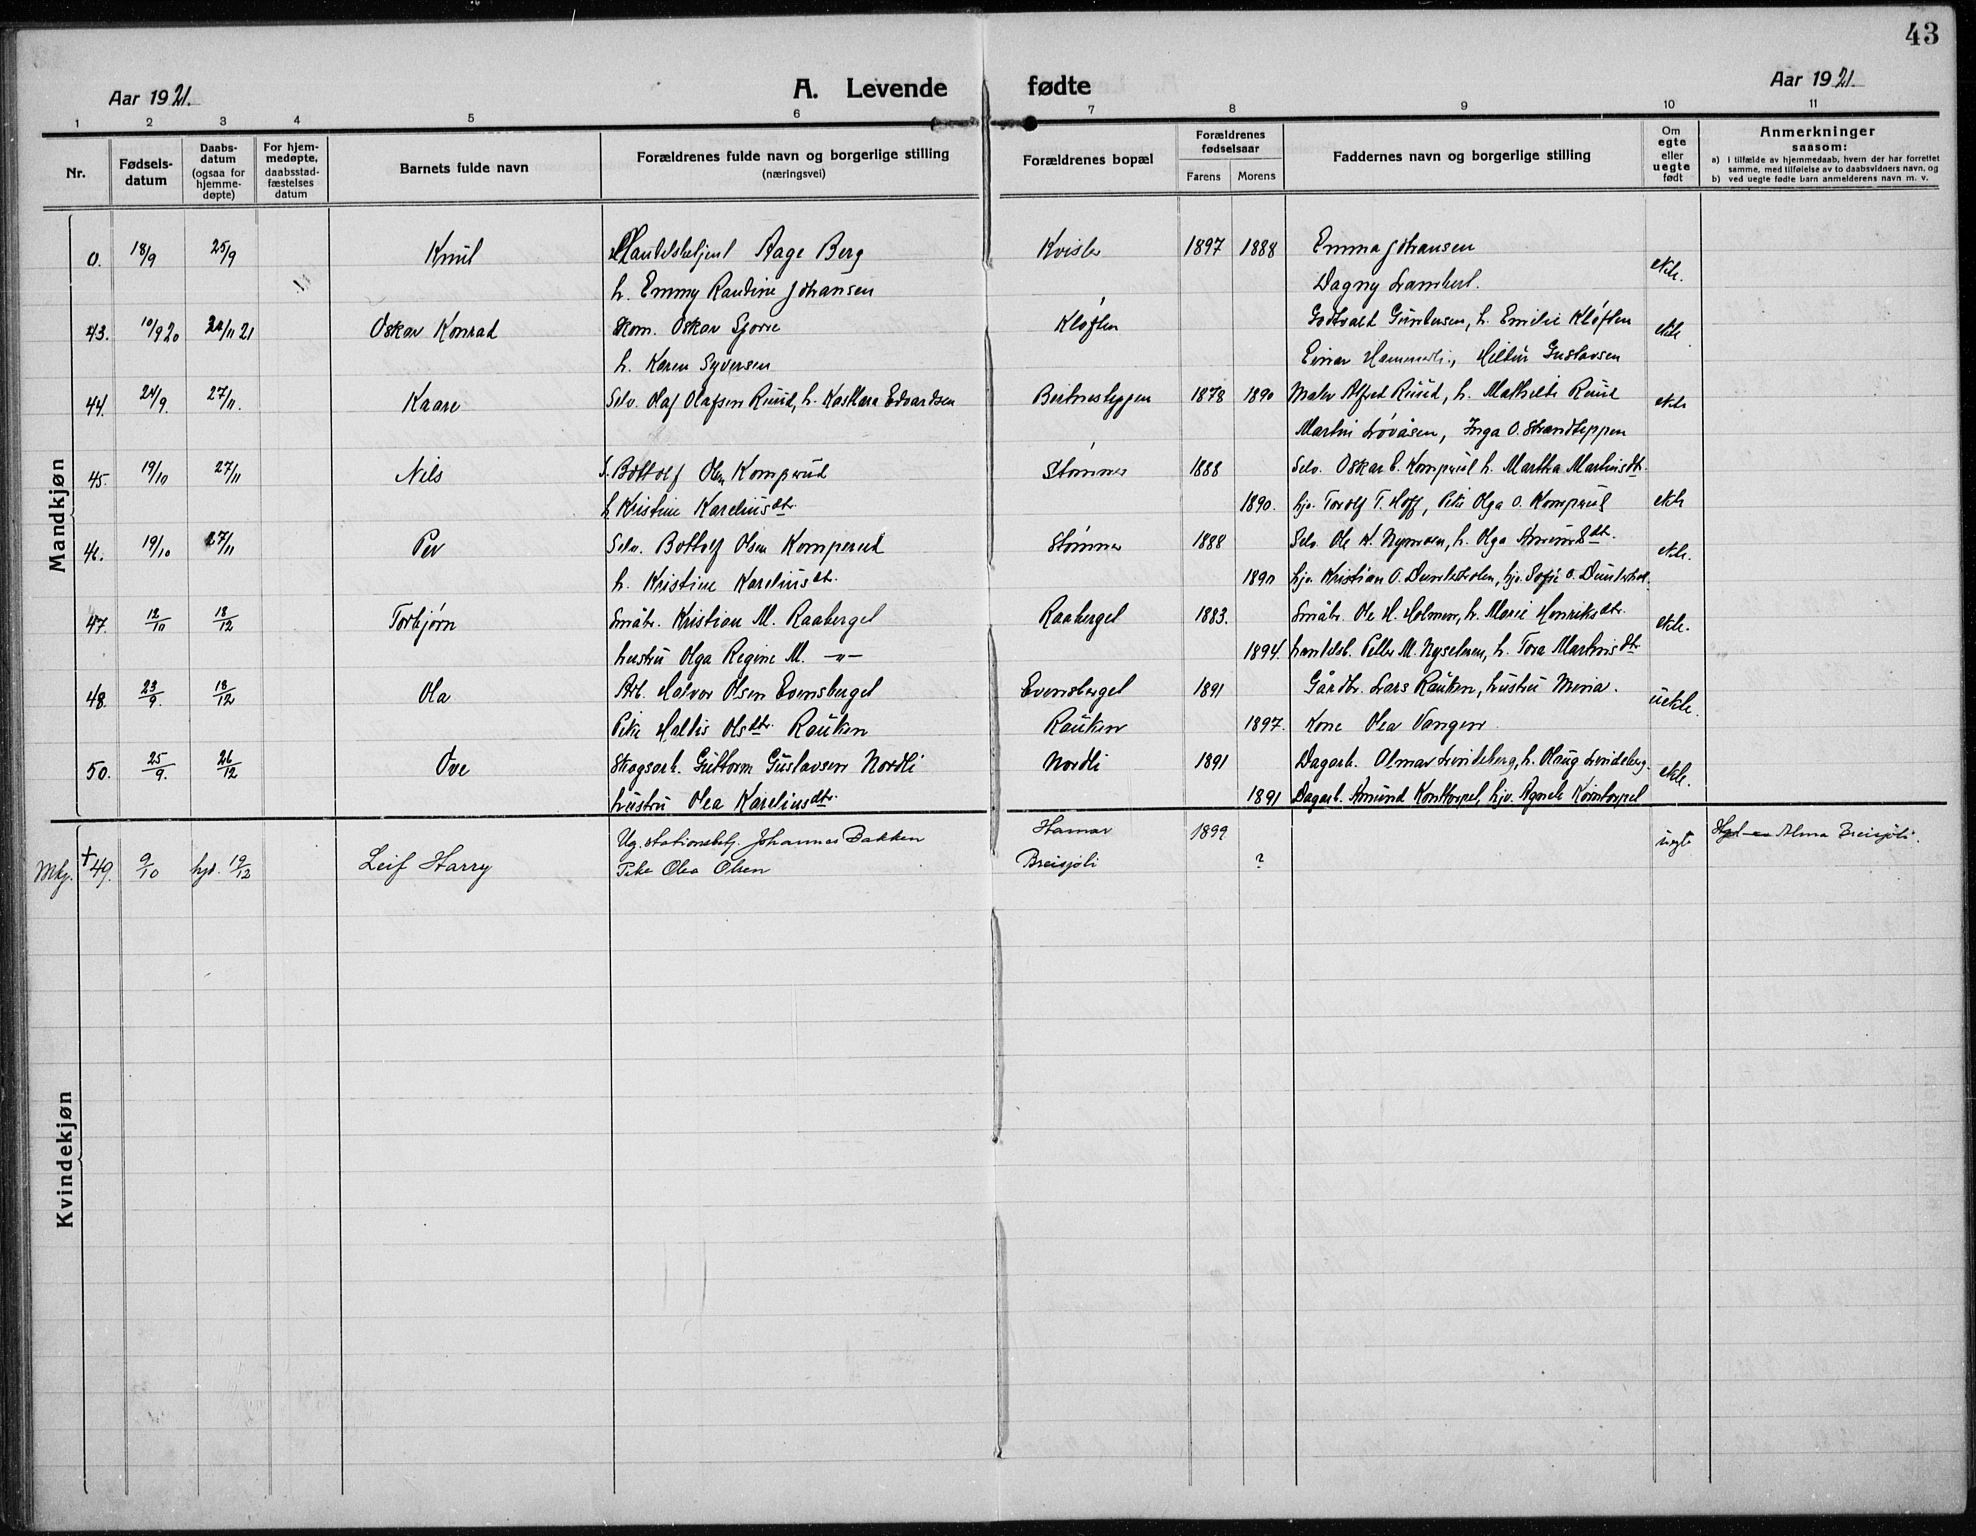 43
Aar 1921.
A. Levende fødte
Aar 1921.
1 2 3 4 5 6 7 8 9 10 11
Nr.
Fødsels-
datum
Daabs-
datum
(ogsaa for
hjemme-
døpte)
For hjem-
medøpte,
daabsstad-
fæstelses
datum
Barnets fulde navn
Forældrenes fulde navn og borgerlige stilling
(næringsvei)
Forældrenes bopæl
Forældrenes
fødselsaar
Farens Morens
Faddernes navn og borgerlige stilling
Om
egte
eller
uegte
født
Anmerkninger
saasom:
a) I tilfælde av hjemmedaab, hvem der har forrettet
samme, med tilføielse av to daabsvidners navn, og
b) ved uegte fødte barn anmelderens navn m. v.
Mandkjøn
0. 18/9 25/9 Knut Handelsbetjent Aage Berg Kvisler 1897 1888 Emma Johansen ekte.
h. Emmy Randine Johansen Dagny Lambert.
43. 10/9 20 21 Oskar Konrad Skom. Oskar Sjorre Kløften Gottvald Gundersen, h. Emilie Kløften ekte
h. Karen Syversen Einar Hammerli, Gustavsen
44. 24/9. 27/11. Kaare Selv. Olaf Olafsen Ruud, h. Edvardsen 1878 1890 Maler Alfred Ruud, h. Mathilde Ruud ekte
Martin Løvåsen, Inga O. Strandteppen
45. 19/10 27/11 Nils S. Bottolf Olsen Komperud Stømner 1888 Selv. Oskar E. Komperud h. Martha Martinsdtr.
h Kristine Kareliusdtr. 1890. hjv. Torolf T. Hoff, Pike Olga O. Komperud ekte
46. 19/10 27/11 Per Selv. Bottolf Olsen Komperud Stømner 1888 Selv. Ole Nymoen, h. Olga ekte.
h. Kristine Kareliusdtr. 1890 hjv. Kristian O. hjv. Sofie O.
47. 12/10 18/12 Torbjørn Småbr. Kristian M. Raaberget Raaberget 1883. Småbr. Ole H. Holmen, h. Marie Henriksdtr. ekte.
hustru Olga Regine M. —"— 1894. handelsb. Petter M. h. Tora Martinsdtr
48. 23/9. 18/12 Ola Arb. Halvor Olsen Evensberget Evensberget 1891 Gårdbr. Lars Rauken, hustru Mina. uekte.
Pike Haldis Olsdtr. Rauken Rauken 1897. Kone Olea Vangen.
50. 25/9. 26/12 Ove Skogsarb. Guttorm Gustavsen Nordli Nordli 1891 Dagarb. Olmar Lindeberg, h. Lindeberg. ekte.
hustru Olea Kareliusdtr. 1891 Dagarb. Amund Korntorpet, hjv. Agnete Korntorpet
Mkj. †49. 9/10 hjd. 19/12 Leif Harry Ug. stationsbetj. Johannes Bakken Hamar 1899 uegte Alma Breisjøli.
Pike Olea Olsen Breisjøli ?
Kvindekjøn